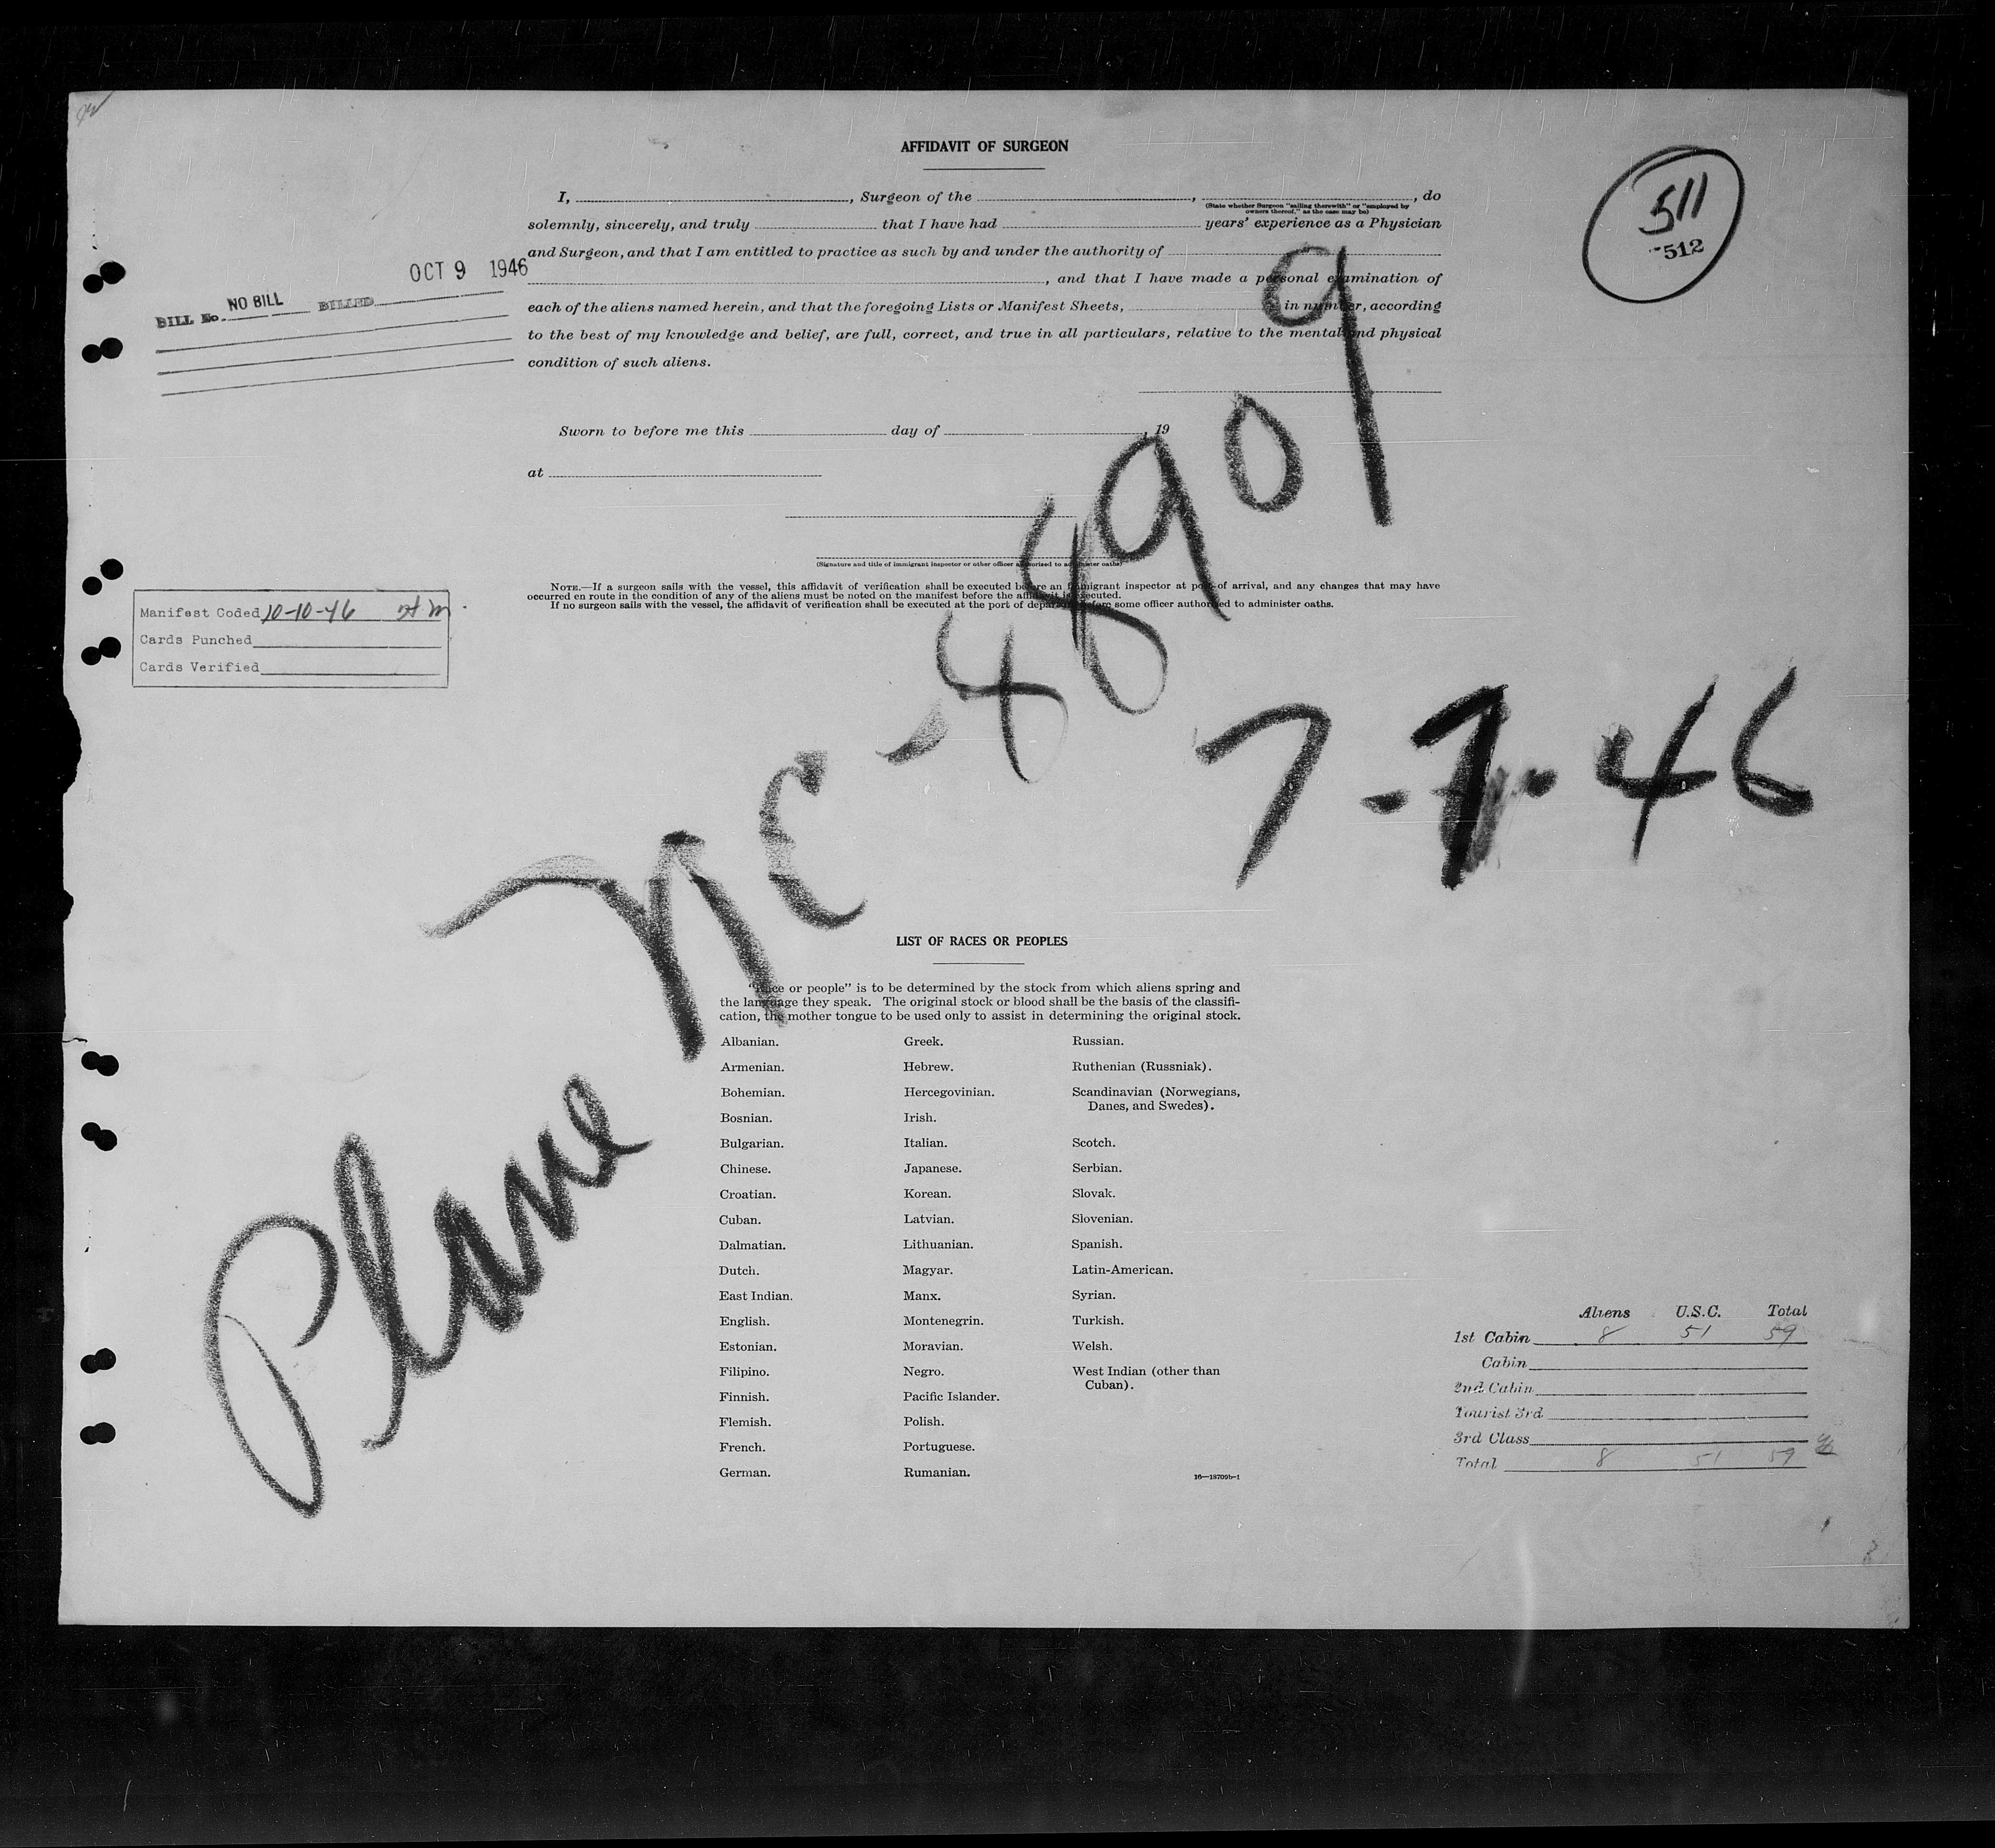 AFFIDAVIT OF SURGEON
511
512
I, , Surgeon of the , , do
(State whether Surgeon "sailing therewith" or "employed by
owners thereof," as the case may be)
solemnly, sincerely, and truly that I have had years' experience as a Physician
and Surgeon, and that I am entitled to practice as such by and under the authority of
, and that I have made a personal examination of
each of the aliens named herein, and that the foregoing Lists or Manifest Sheets, in number, according
to the best of my knowledge and belief, are full, correct, and true in all particulars, relative to the mental and physical
condition of such aliens.
OCT 9 1946
BILL No. NO BILL BILLED
Sworn to before me this day of , 19
at
(Signature and title of immigrant inspector or other officer authorized to administer oaths)
NOTE.—If a surgeon sails with the vessel, this affidavit of verification shall be executed before an immigrant inspector at port of arrival, and any changes that may have
occurred en route in the condition of any of the aliens must be noted on the manifest before the affidavit is executed.
If no surgeon sails with the vessel, the affidavit of verification shall be executed at the port of departure before some officer authorized to administer oaths.
Manifest Coded 10-10-46
Cards Punched
Cards Verified
Plane NC-88909
7-7-46
LIST OF RACES OR PEOPLES
"Race or people" is to be determined by the stock from which aliens spring and
the language they speak. The original stock or blood shall be the basis of the classifi-
cation, the mother tongue to be used only to assist in determining the original stock.
Albanian.
Armenian.
Bohemian.
Bosnian.
Bulgarian.
Chinese.
Croatian.
Cuban.
Dalmatian.
Dutch.
East Indian.
English.
Estonian.
Filipino.
Finnish.
Flemish.
French.
German.
Greek.
Hebrew.
Hercegovinian.
Irish.
Italian.
Japanese.
Korean.
Latvian.
Lithuanian.
Magyar.
Manx.
Montenegrin.
Moravian.
Negro.
Pacific Islander.
Polish.
Portuguese.
Rumanian.
Russian.
Ruthenian (Russniak).
Scandinavian (Norwegians,
Danes, and Swedes).
Scotch.
Serbian.
Slovak.
Slovenian.
Spanish.
Latin-American.
Syrian.
Turkish.
Welsh.
West Indian (other than
Cuban).
16—18709b-1
Aliens U.S.C. Total
1st Cabin 8 51 59
Cabin
2nd Cabin
Tourist 3rd
3rd Class
Total 8 51 59